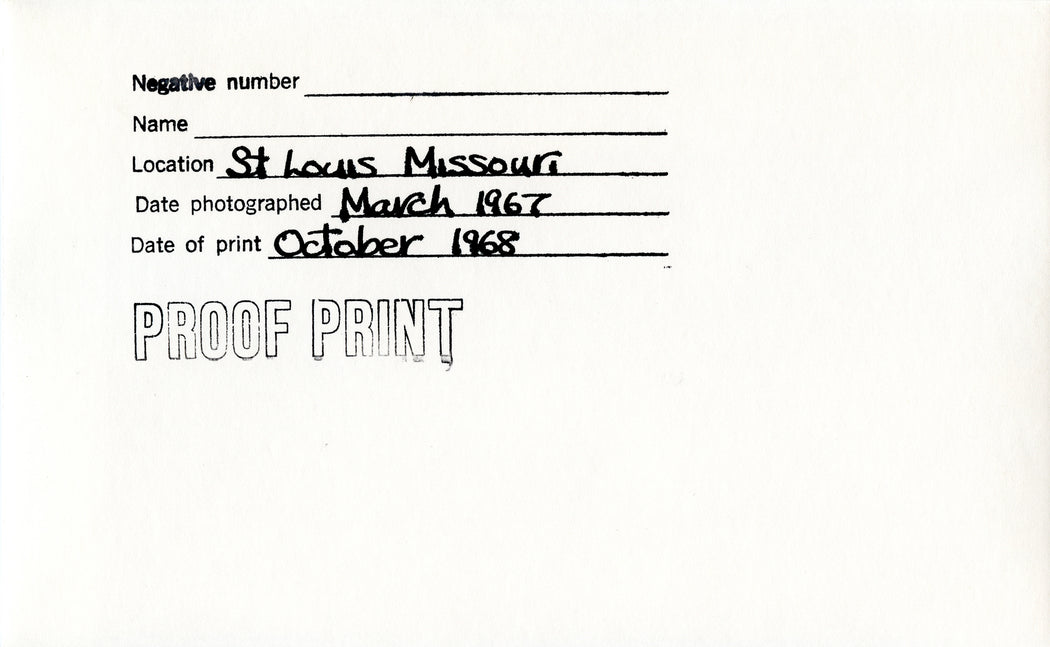 Negative number
Name
Location St Louis Missouri
Date photographed March 1967
Date of print October 1968
PROOF PRINT